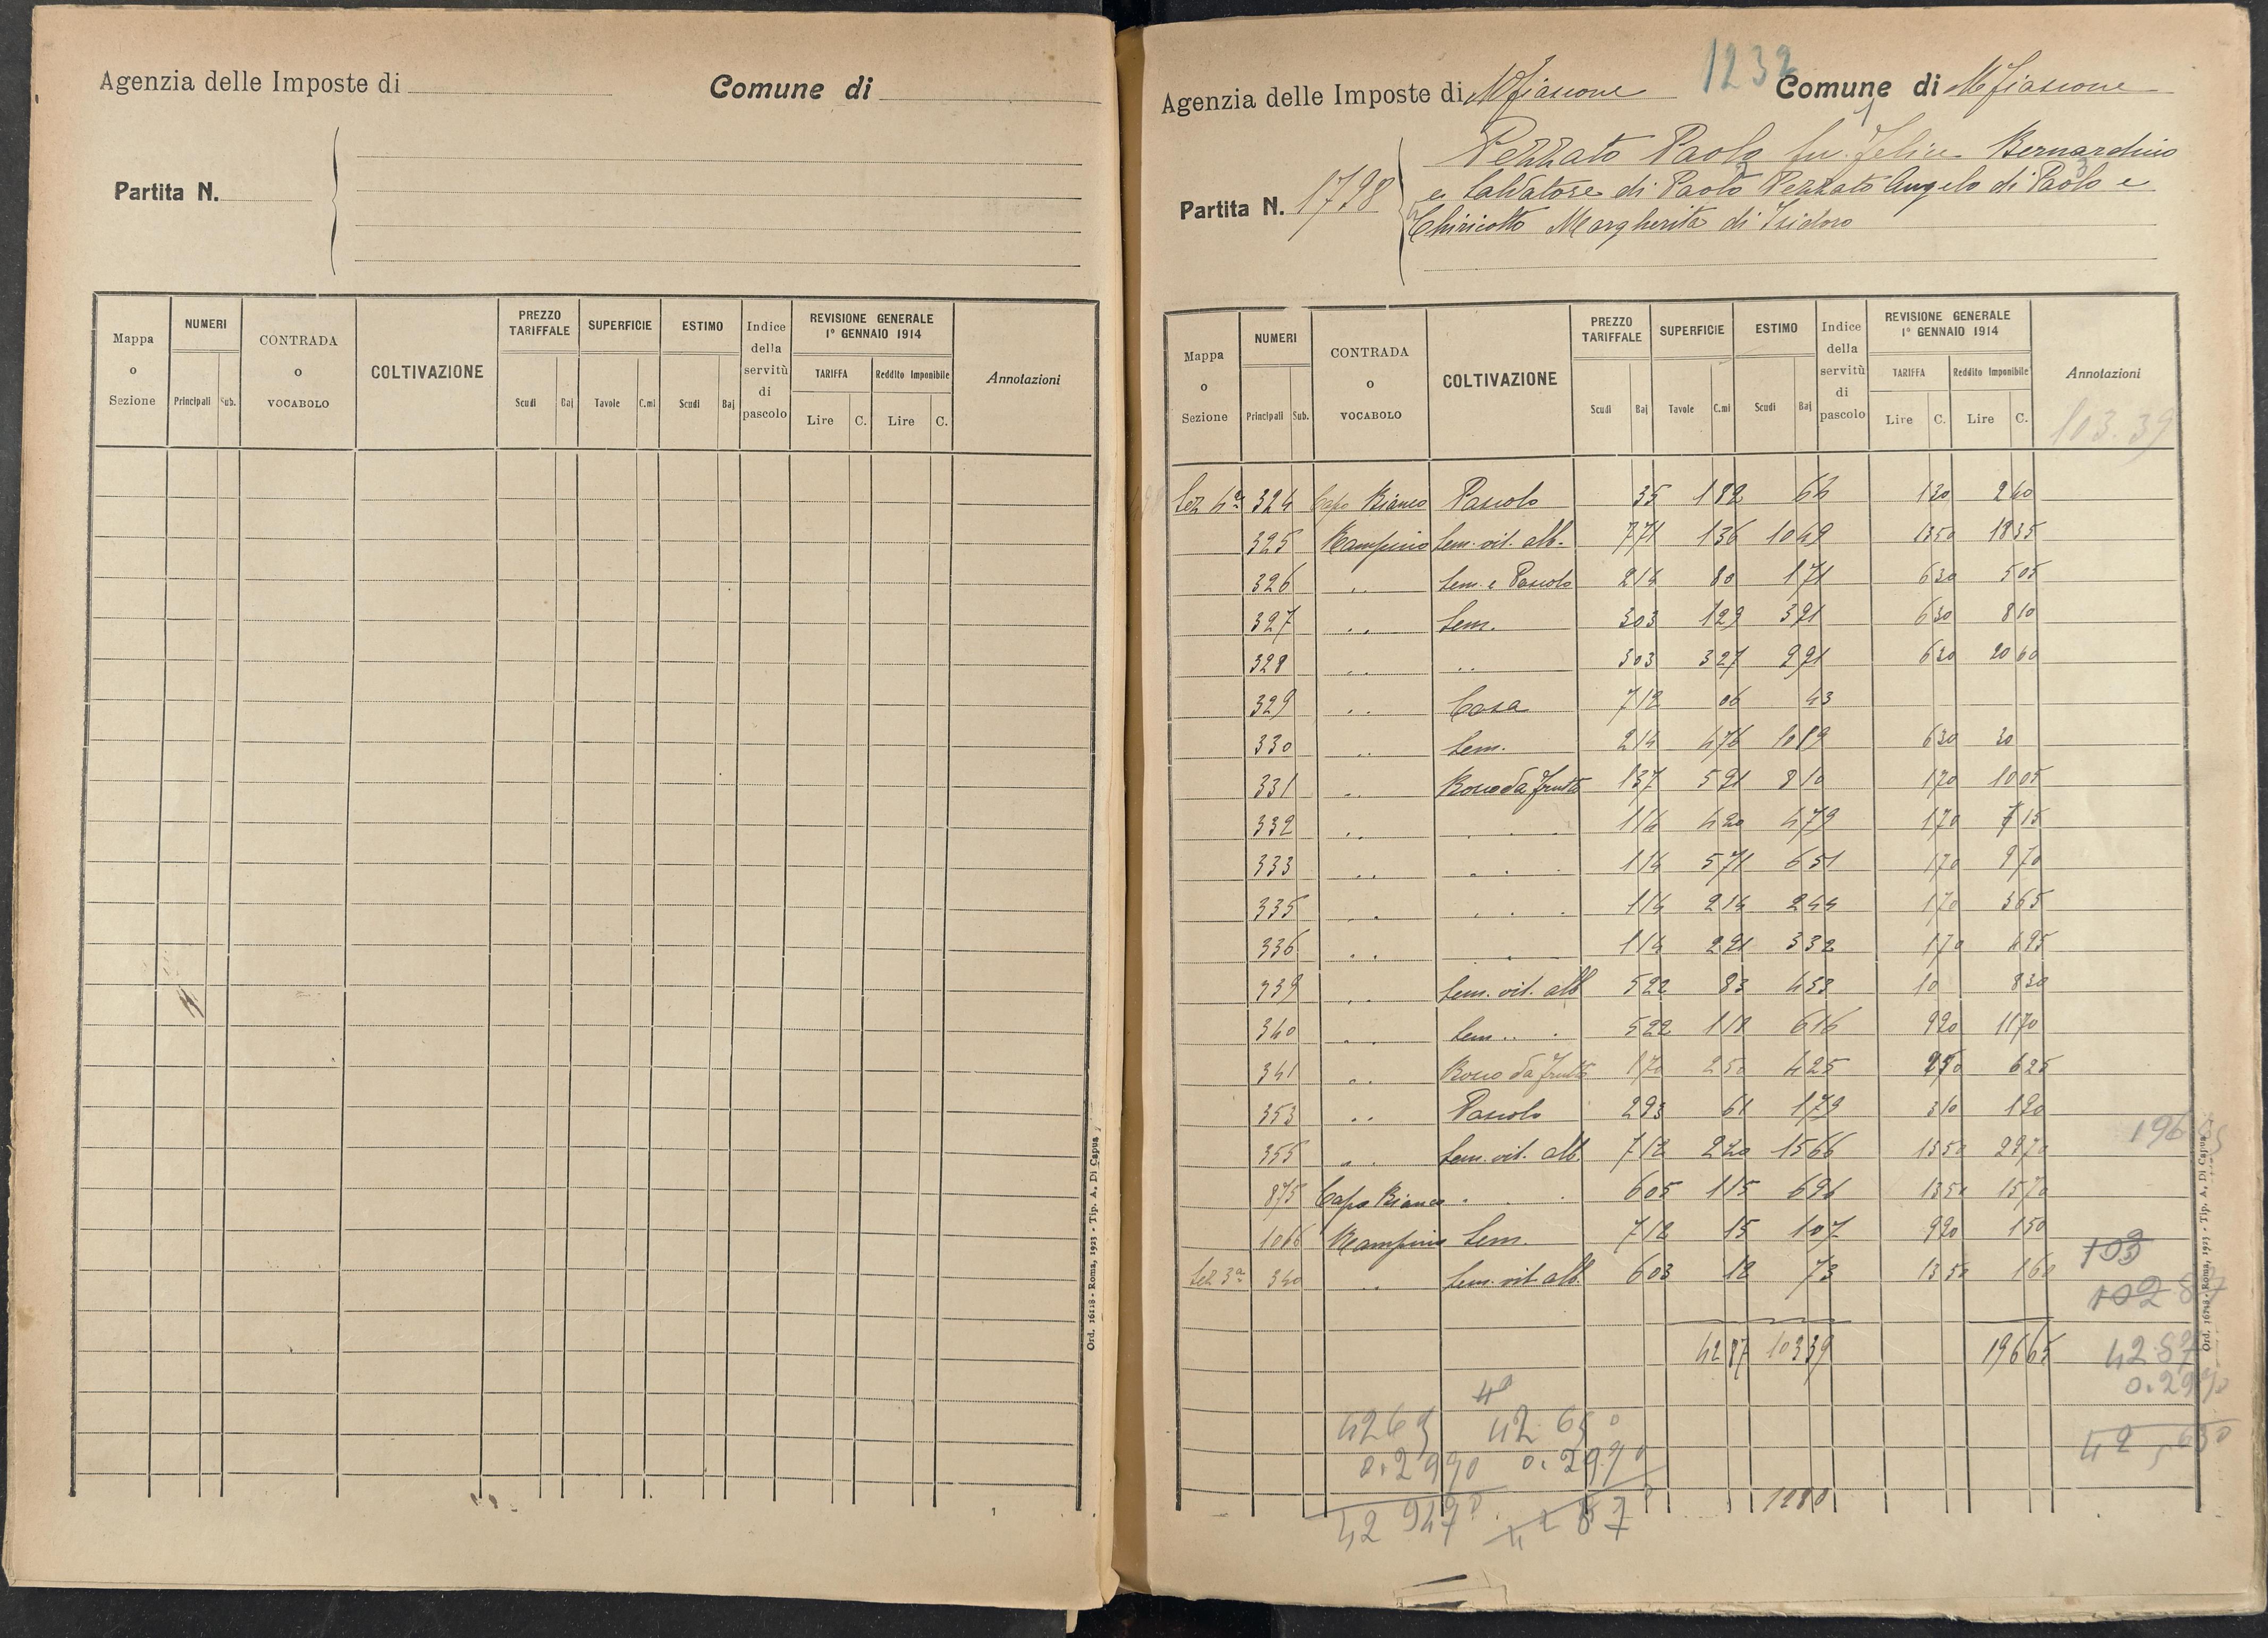 Agenzia delle Imposte di Comune di
Partita N.
Mappa o Sezione NUMERI Principali Sub. CONTRADA o VOCABOLO COLTIVAZIONE PREZZO TARIFFALE Scudi Baj SUPERFICIE Tavole C.mi ESTIMO Scudi Baj Indice della servitù di pascolo REVISIONE GENERALE 1° GENNAIO 1914 TARIFFA Lire C. Reddito Imponibile Lire C. Annotazioni
Ord. 16118 - Roma, 1923 - Tip. A. Di Capua
1232
Agenzia delle Imposte di Mfiascone Comune di Mfiascone
Partita N. 1798
Pezzato Paolo fu Felice Bernardino
e Salvatore di Paolo Pezzato Angelo di Paolo e
Chiricotto Margherita di Isidoro
Mappa o Sezione NUMERI Principali Sub. CONTRADA o VOCABOLO COLTIVAZIONE PREZZO TARIFFALE Scudi Baj SUPERFICIE Tavole C.mi ESTIMO Scudi Baj Indice della servitù di pascolo REVISIONE GENERALE 1° GENNAIO 1914 TARIFFA Lire C. Reddito Imponibile Lire C. Annotazioni
103.39
Sez 4ª 324 Capo Bianco Pascolo 35 182 64 1 30 2 40
325 Sem. vit. alb. 7 71 1 36 10 49 13 50 18 35
326 " Sem. e Pascolo 2 14 80 1 71 6 30 5 05
327 " Sem. 3 03 1 29 3 91 6 30 8 10
328 " " 3 03 3 27 9 91 6 30 20 60
329 " Casa 7 12 06 43
330 " Sem. 2 14 4 76 10 19 6 30 30
331 " Bosco da frutto 1 37 5 91 8 10 1 70 10 05
332 " " 1 14 4 20 4 79 1 70 7 15
333 " " 1 14 5 71 6 51 1 70 9 70
335 " " 1 14 2 14 2 44 1 70 3 65
336 " " 1 14 2 91 3 32 1 70 4 95
339 " Sem. vit. alb 5 22 83 4 33 10 8 30
340 " Sem. " 5 22 1 18 6 16 9 90 11 70
341 " Bosco da frutto 1 70 2 50 4 25 2 50 6 25
353 " Pascolo 2 93 61 1 79 3 10 1 90
355 " Sem. vit. alb 7 12 2 20 15 66 13 50 29 70
196 65
875 Capo Bianco " 6 05 1 15 6 96 13 50 15 70
1066 Sem. 7 12 15 1 07 9 90 1 50
103
Sez 3ª 340 " Sem. vit. alb 6 03 12 73 13 50 1 60
102 87
42 87 103 39 196 65
42 87
0.2990
4265 42 65
0.2990 0.2990
42 87
1280